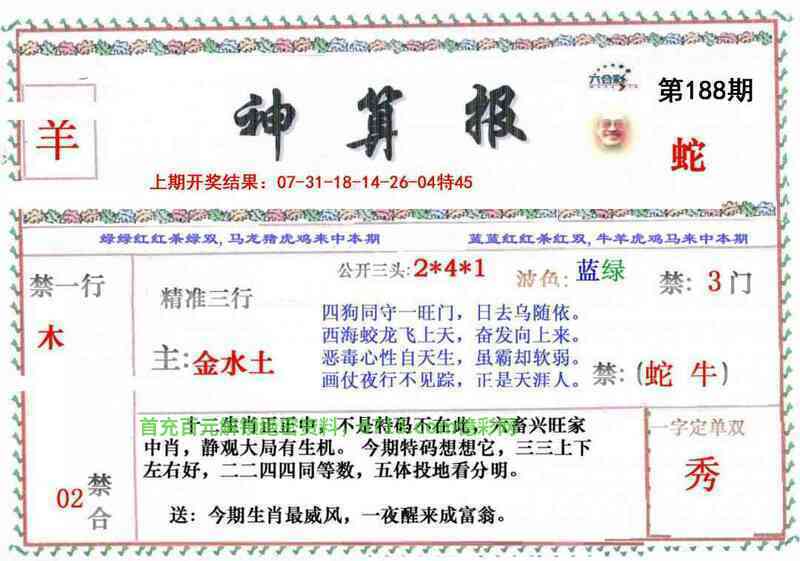 六合彩
第188期
羊
神算报
蛇
上期开奖结果：07-31-18-14-26-04特45
绿绿红红杀绿双,马龙猪虎鸡来中本期
蓝蓝红红杀红双,牛羊虎鸡马来中本期
禁一行
木
精准三行
主:金水土
公开三头:2*4*1
波色:蓝绿
禁:3门
四狗同守一旺门，日去乌随依。
西海蛟龙飞上天，奋发向上来。
恶毒心性自天生，虽霸却软弱。
画仗夜行不见踪，正是天涯人。
禁:(蛇 牛)
十一生肖正正中，不是特码不在此，六畜兴旺家
中肖，静观大局有生机。 今期特码想想它，三三上下
左右好，二二四四同等数，五体投地看分明。
送：今期生肖最威风，一夜醒来成富翁。
02
禁合
一字定单双
秀
首充百元